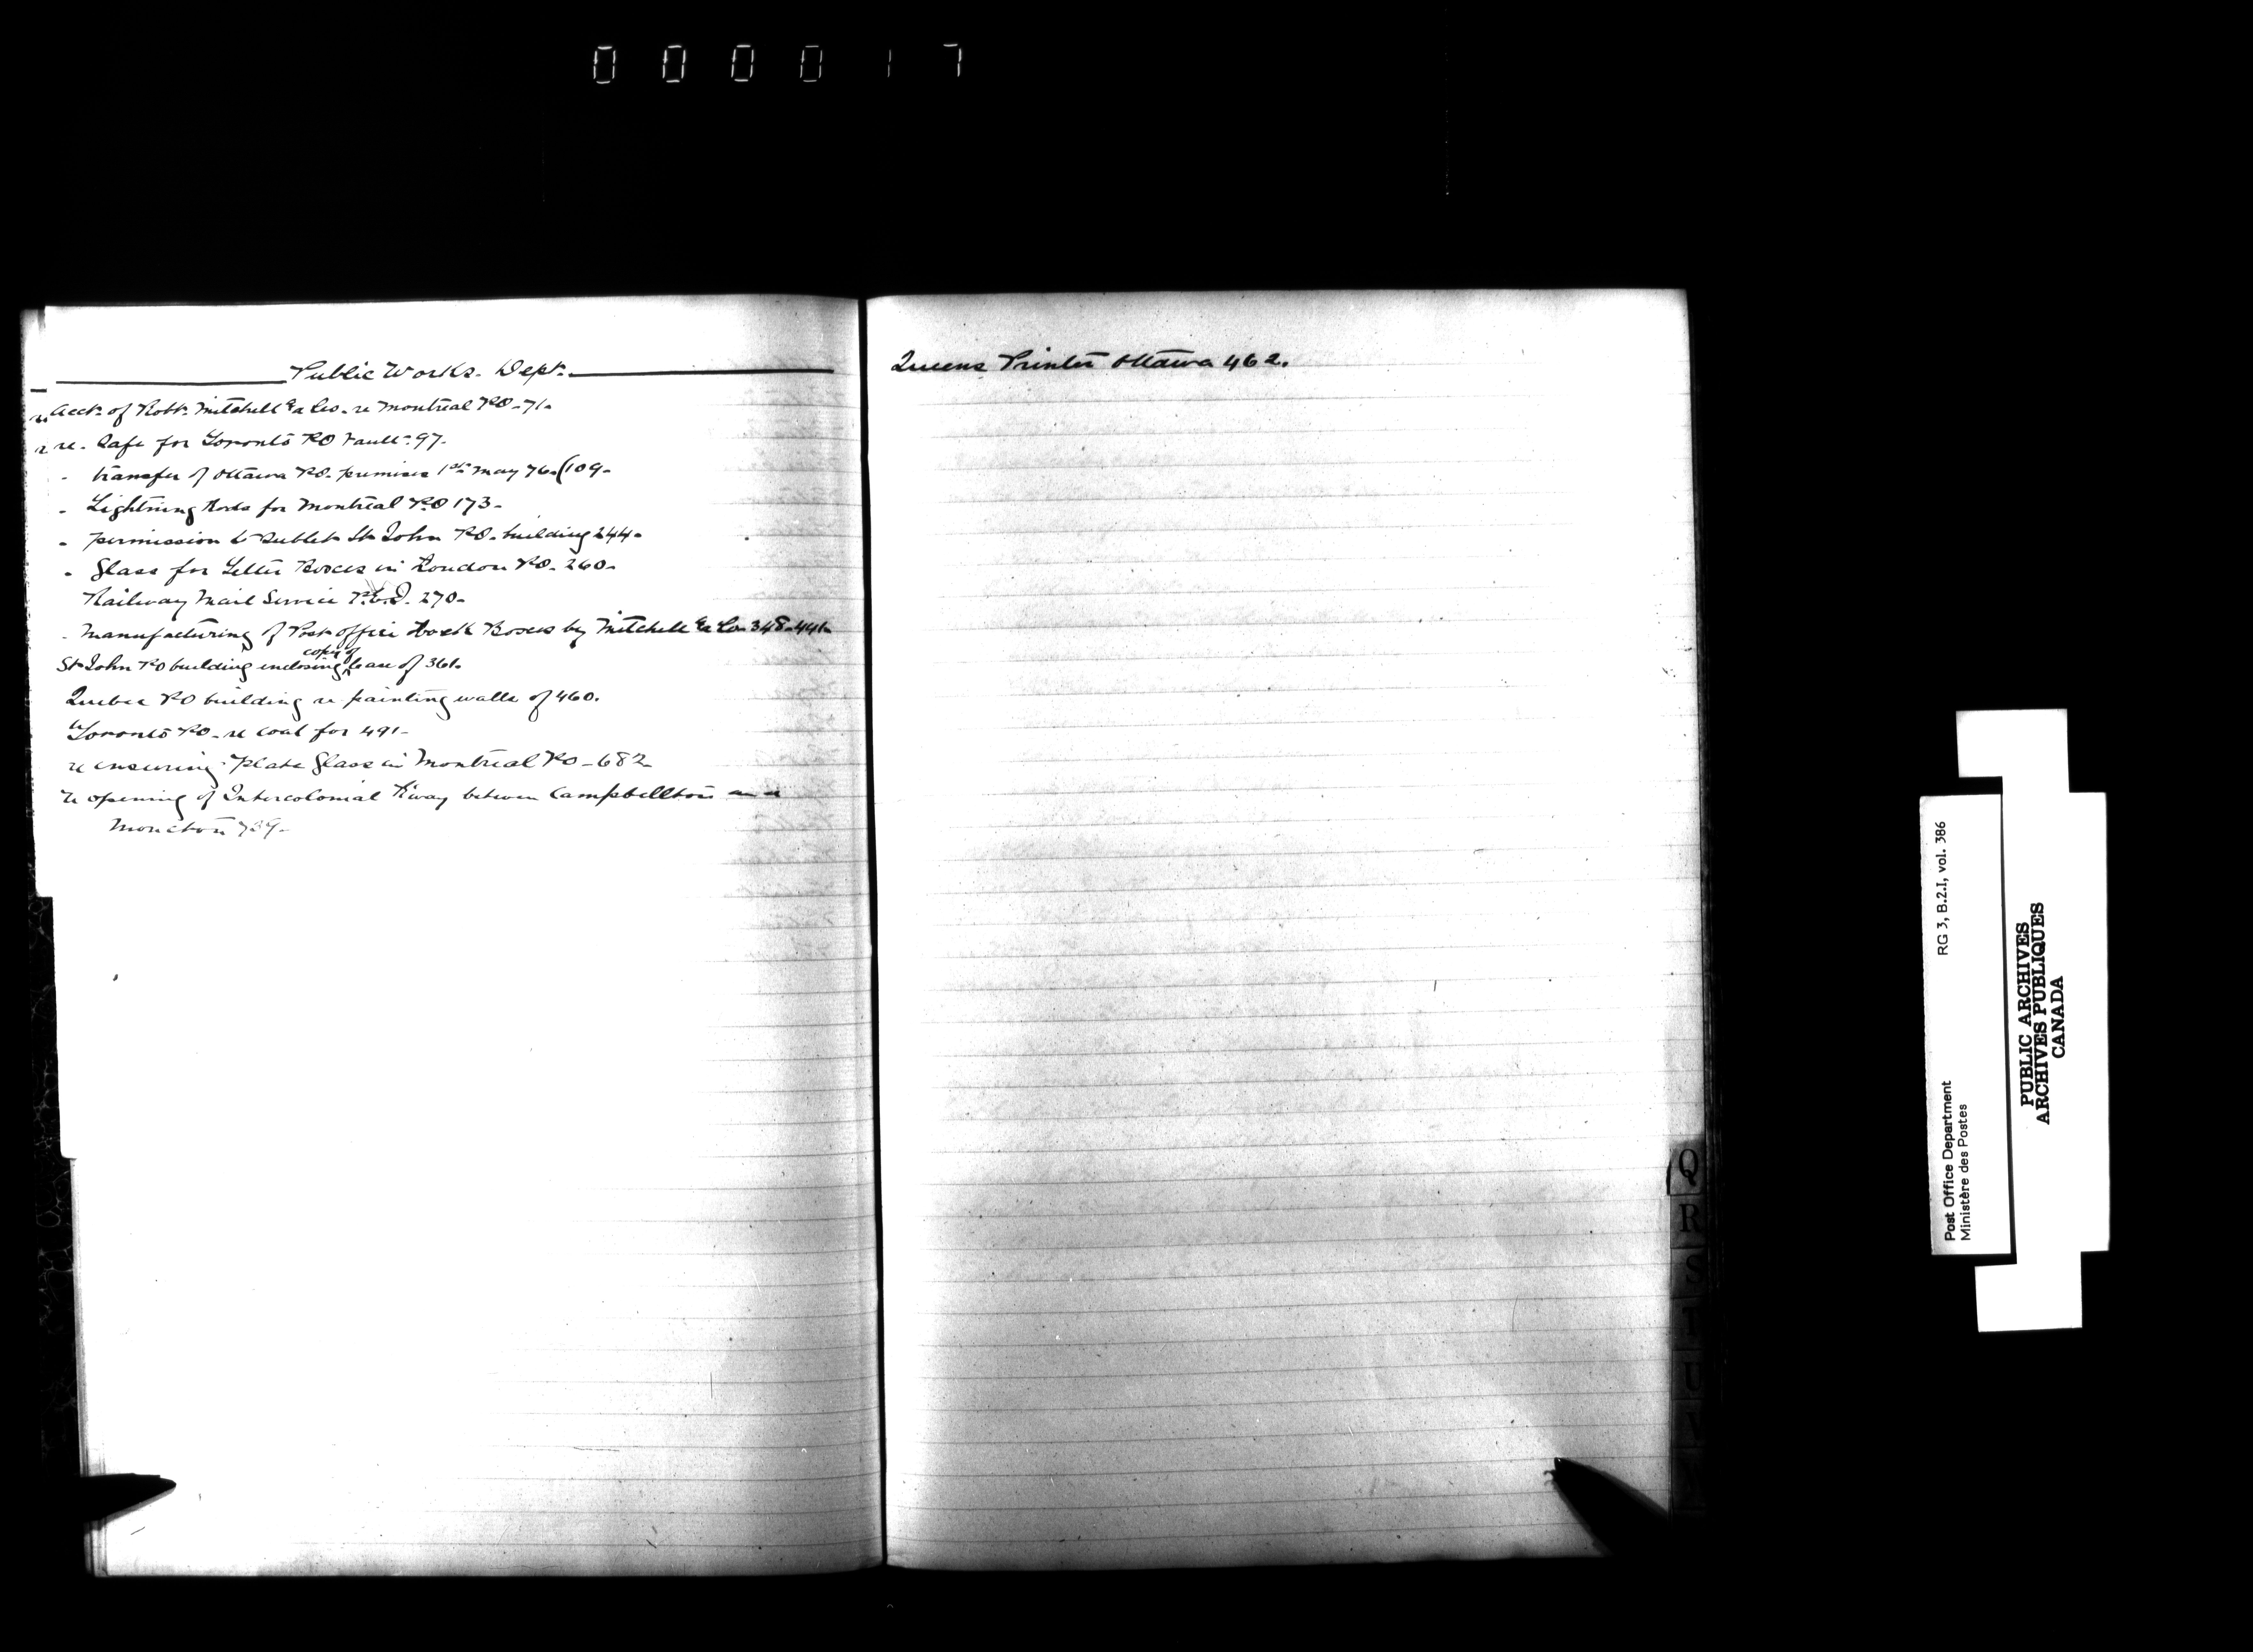 000017
Public Works. Dept.
re Acct. of Robt. Mitchell & Co. re Montreal PO - 71-
re. Safe for Toronto PO Vault - 97-
- transfer of Ottawa PO. premises 1st May 76. (109-
- Lightning Rods for Montreal PO 173-
- permission to Sublet St John PO. building 244-
- Glass for Letter Boxes in London PO. 260-
Railway Mail Service P.E.I. 270-
- Manufacturing of Post office Lock Boxes by Mitchell & Co 348-441-
copy of
St John PO building enclosing lease of 361.
Quebec PO building re painting walls of 460.
Toronto PO - re coal for 491-
re ensuring Plate Glass in Montreal PO - 682
re opening of Intercolonial Rway between Campbellton and
Moncton 739-
Queens Printer Ottawa 462.
Q
R
S
T
U
V
Post Office Department RG 3, B.2.I, vol. 386
Ministère des Postes
PUBLIC ARCHIVES
ARCHIVES PUBLIQUES
CANADA